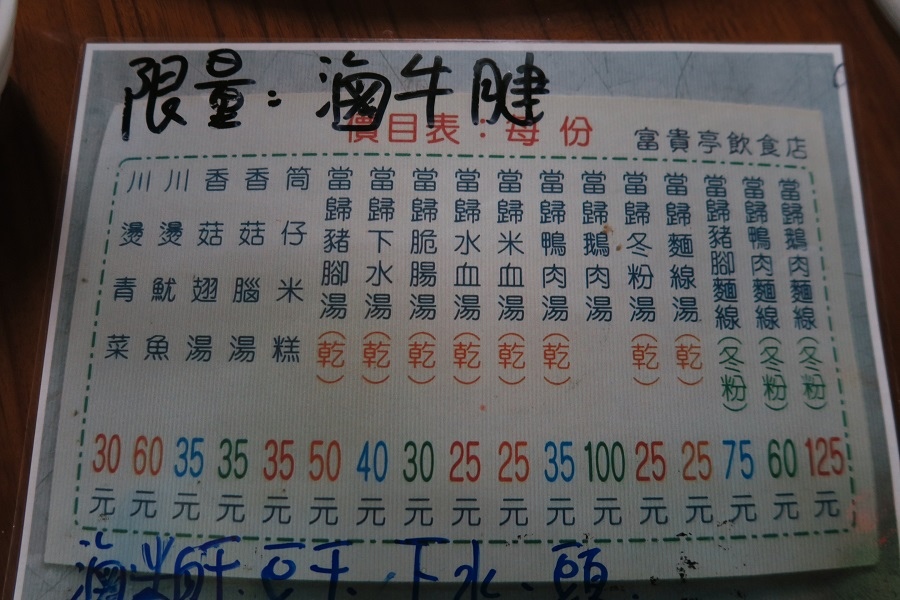 限量：滷牛腱
價目表：每份
富貴亭飲食店
當歸鵝肉麵線(冬粉) 125元
當歸鴨肉麵線(冬粉) 60元
當歸豬腳麵線(冬粉) 75元
當歸麵線湯(乾) 25元
當歸冬粉湯(乾) 25元
當歸鵝肉湯 100元
當歸鴨肉湯(乾) 35元
當歸米血湯(乾) 25元
當歸水血湯(乾) 25元
當歸脆腸湯(乾) 30元
當歸下水湯(乾) 40元
當歸豬腳湯(乾) 50元
筒仔米糕 35元
香菇腦湯 35元
香菇翅湯 35元
川燙魷魚 60元
川燙青菜 30元
滷 豆干、下水、頭